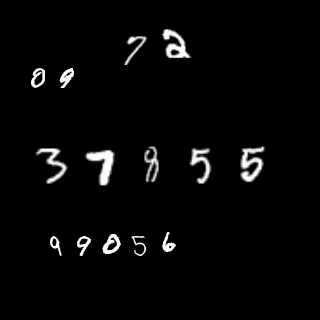 72
09
37855
99056